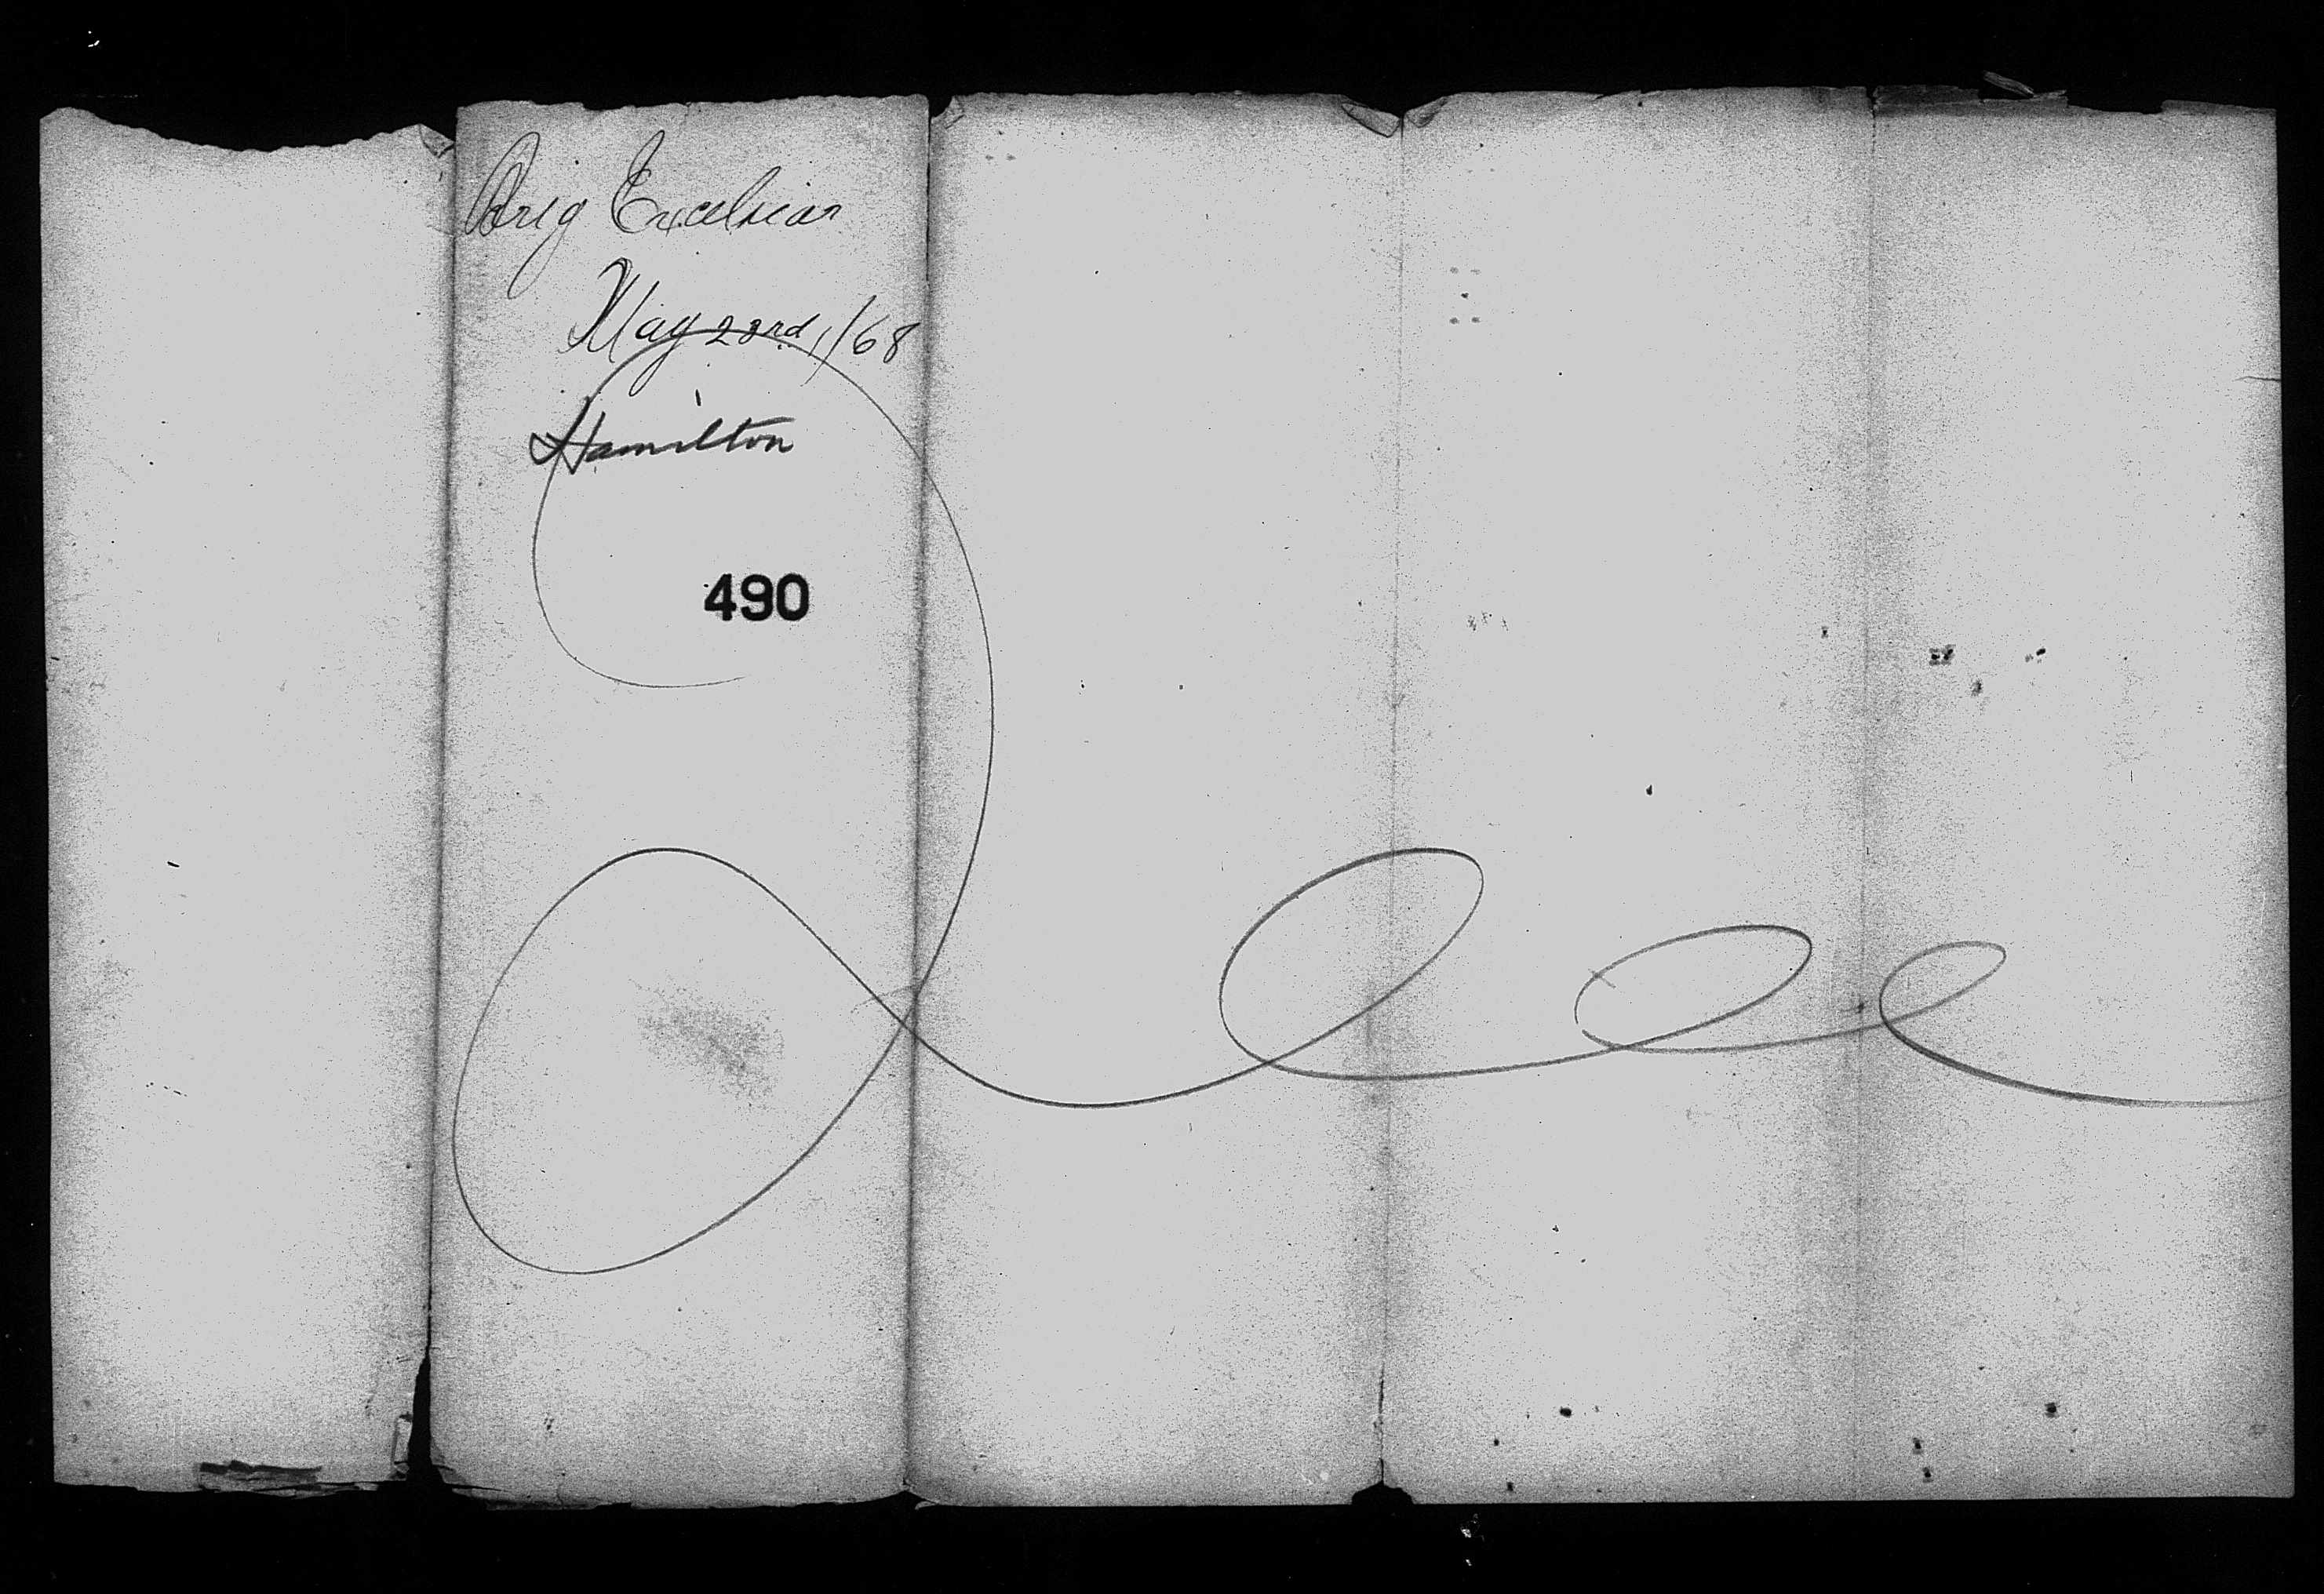 Brig Excelsior
May 23rd, /68
Hamilton
490